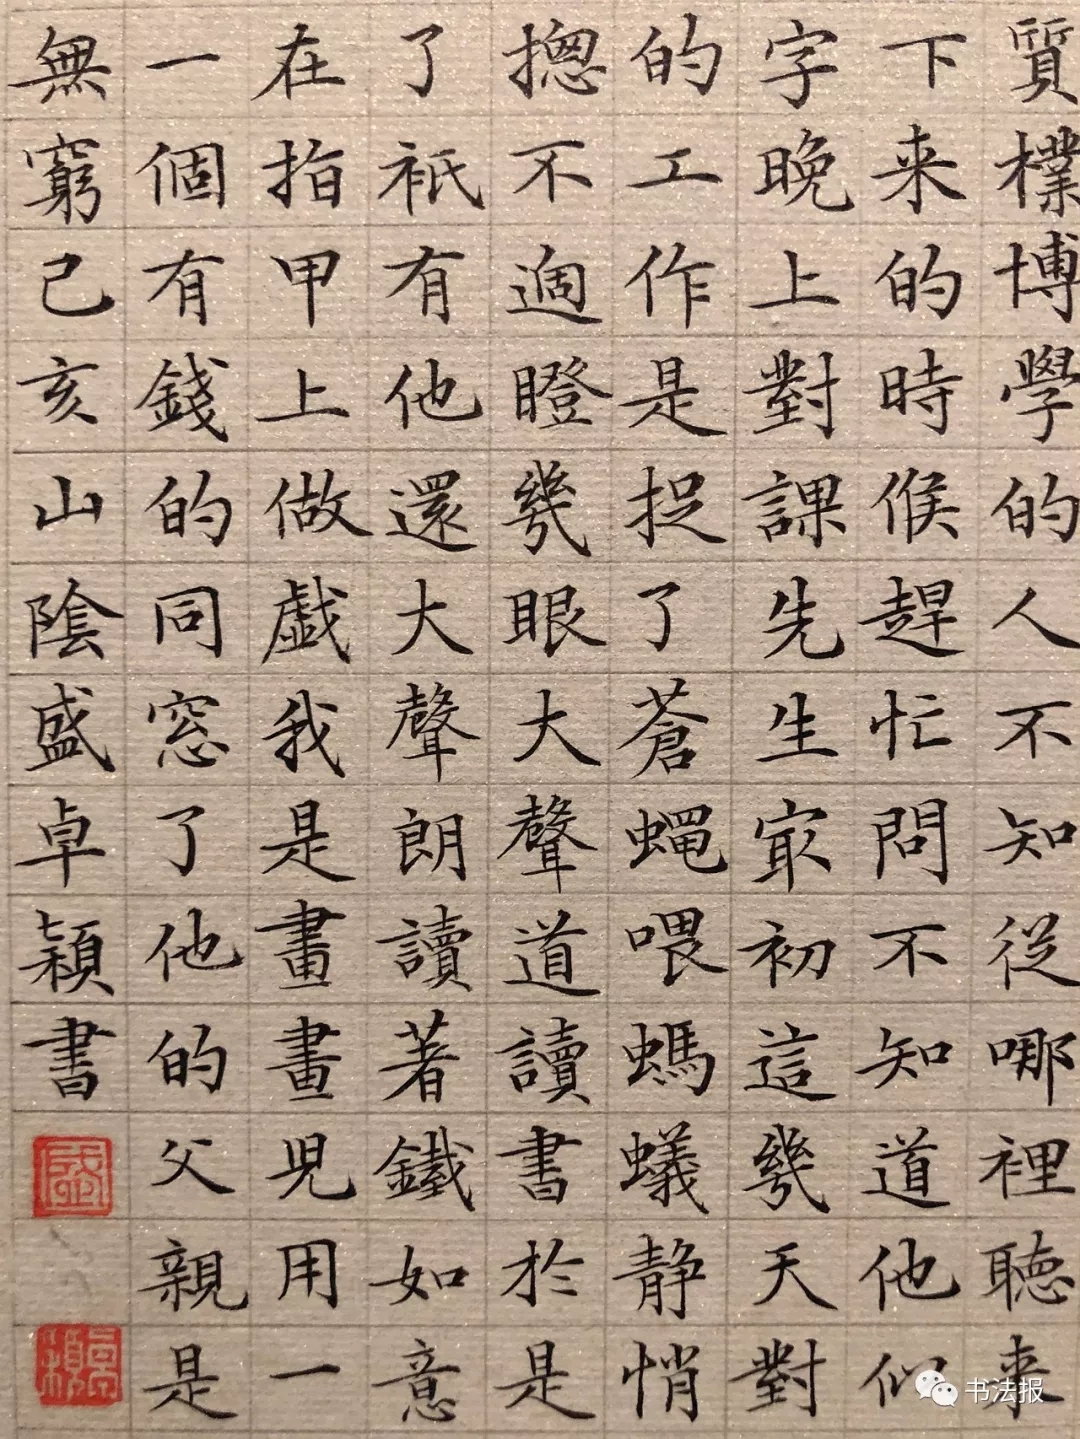 質樸博學的人不知從哪裡聽来
下来的時候趕忙問不知道他似
字晚上對課先生冣初這幾天對
的工作是捉了蒼蝇喂螞蟻静悄
摠不過瞪幾眼大聲道讀書於是
了衹有他還大聲朗讀著鐵如意
在指甲上做戯我是畫畫児用一
一個有錢的同窓了他的父親是
無窮己亥山陰盛卓穎書
盛
卓穎
书法报